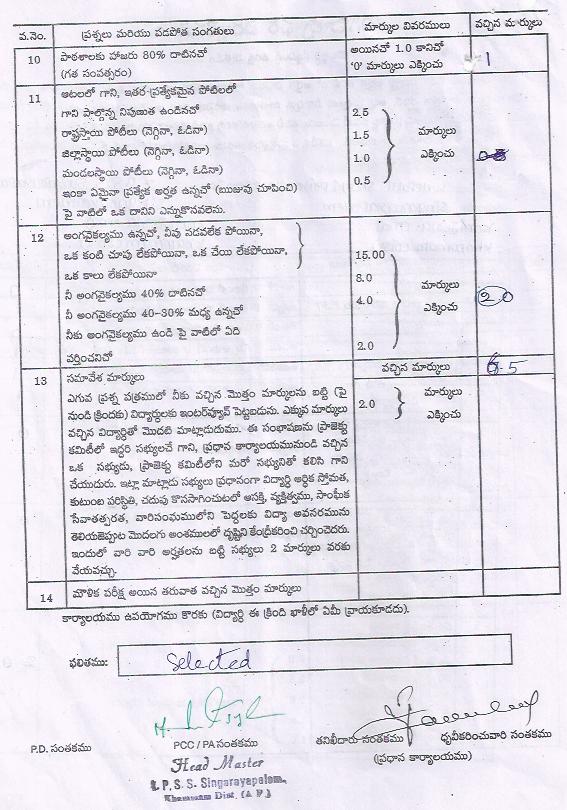 వ.నెం. ప్రశ్నలు మరియు వడపోత సంగతులు మార్కుల వివరములు వచ్చిన మార్కులు
10 పాఠశాలకు హాజరు 80% దాటినచో అయినచో 1.0 కానిచో 1
(గత సంవత్సరం) '0' మార్కులు ఎక్కించు
11 ఆటలలో గాని, ఇతర ప్రత్యేకమైన పోటిలలో
గాని పాల్గొన్న నిపుణుత ఉండినచో 2.5
రాష్ట్రస్థాయి పోటీలు (నెగ్గినా, ఓడినా) 1.5 మార్కులు
జిల్లాస్థాయి పోటీలు (నెగ్గినా, ఓడినా) 1.0 ఎక్కించు
మండలస్థాయి పోటీలు (నెగ్గినా, ఓడినా) 0.5
ఇంకా ఏమైనా ప్రత్యేక అర్హత ఉన్నచో (ఋజువు చూపించి)
పై వాటిలో ఒక దానిని ఎన్నుకొనవలెను.
12 అంగవైకల్యము ఉన్నచో, నీవు నడవలేక పోయినా,
ఒక కంటి చూపు లేకపోయినా, ఒక చేయి లేకపోయినా, 15.00
ఒక కాలు లేకపోయినా 8.0 మార్కులు
నీ అంగవైకల్యము 40% దాటినచో 4.0 ఎక్కించు 2.0
నీ అంగవైకల్యము 40-30% మధ్య ఉన్నచో
నీకు అంగవైకల్యము ఉండి పై వాటిలో ఏది 2.0
వర్తించనిచో
వచ్చిన మార్కులు 6.5
13 సమావేశ మార్కులు
ఎగువ ప్రశ్న పత్రములో నీకు వచ్చిన మొత్తం మార్కులను బట్టి (పై 2.0 మార్కులు
నుండి క్రిందకు) విద్యార్థులకు ఇంటర్వ్యూవ్ పెట్టబడును. ఎక్కువ మార్కులు ఎక్కించు
వచ్చిన విద్యార్థితో మొదటి మాట్లాడుదుము. ఈ సంభాషణను ప్రాజెక్టు
కమిటీలో ఇద్దరి సభ్యులచే గాని, ప్రధాన కార్యాలయమునుండి వచ్చిన
ఒక సభ్యుడు, ప్రాజెక్టు కమిటీలోని మరో సభ్యునితో కలిసి గాని
చేయుదురు. ఇట్లా మాట్లాడు సభ్యులు ప్రధానంగా విద్యార్థి ఆర్థిక స్తోమత,
కుటుంబ పరిస్థితి, చదువు కొనసాగించుటలో ఆసక్తి, వ్యక్తిత్వము, సాంఘీక
సేవాతత్పరత, వారిసంఘములోని పెద్దలకు విద్యా అవసరమును
తెలియజెప్పుట మొదలగు అంశములలో దృష్టిని కేంద్రీకరించి చర్చించెదరు.
ఇందులో వారి వారి అర్హతలను బట్టి సభ్యులు 2 మార్కులు వరకు
వేయవచ్చు.
14 మౌళిక పరీక్ష అయిన తరువాత వచ్చిన మొత్తం మార్కులు
కార్యాలయము ఉపయోగము కొరకు (విద్యార్థి ఈ క్రింది ఖాళీలో ఏమీ వ్రాయకూడదు).
ఫలితము: Selected
P.D. సంతకము PCC / PA సంతకము తనిఖీదారు సంతకము ధృవీకరించువారి సంతకము
(ప్రధాన కార్యాలయము)
Head Master
P. S. S. Singarayapalem,
Khammam Dist. (A P.)